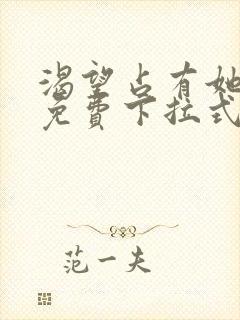 渴望占有她
免費下拉式
范一夫